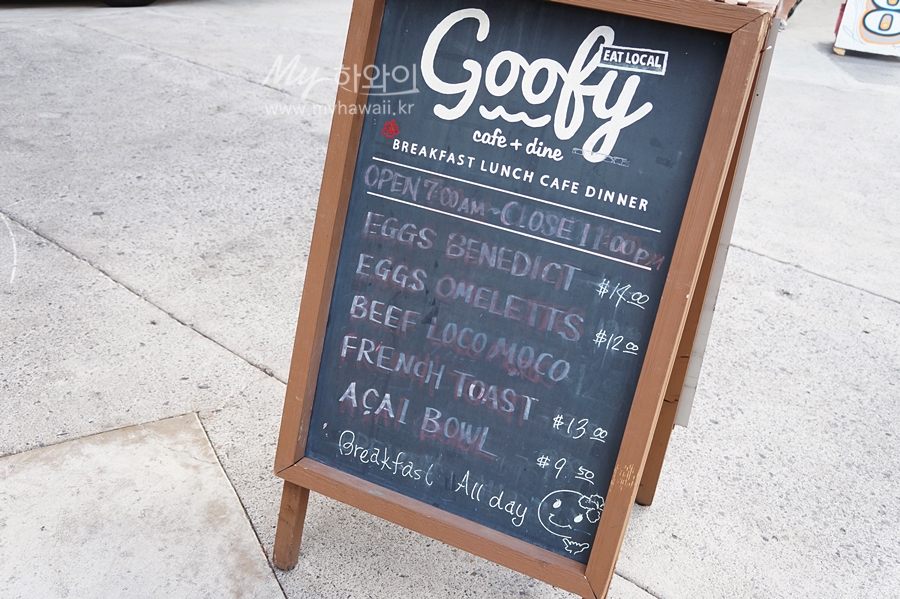 My 하와이
www.myhawaii.kr
Goofy
EAT LOCAL
cafe + dine
BREAKFAST LUNCH CAFE DINNER
OPEN 7:00AM~CLOSE 11:00PM
EGGS BENEDICT $14.00
EGGS OMELETTS $12.00
BEEF LOCO MOCO
FRENCH TOAST $13.00
AÇAI BOWL $9.50
Breakfast All day
8